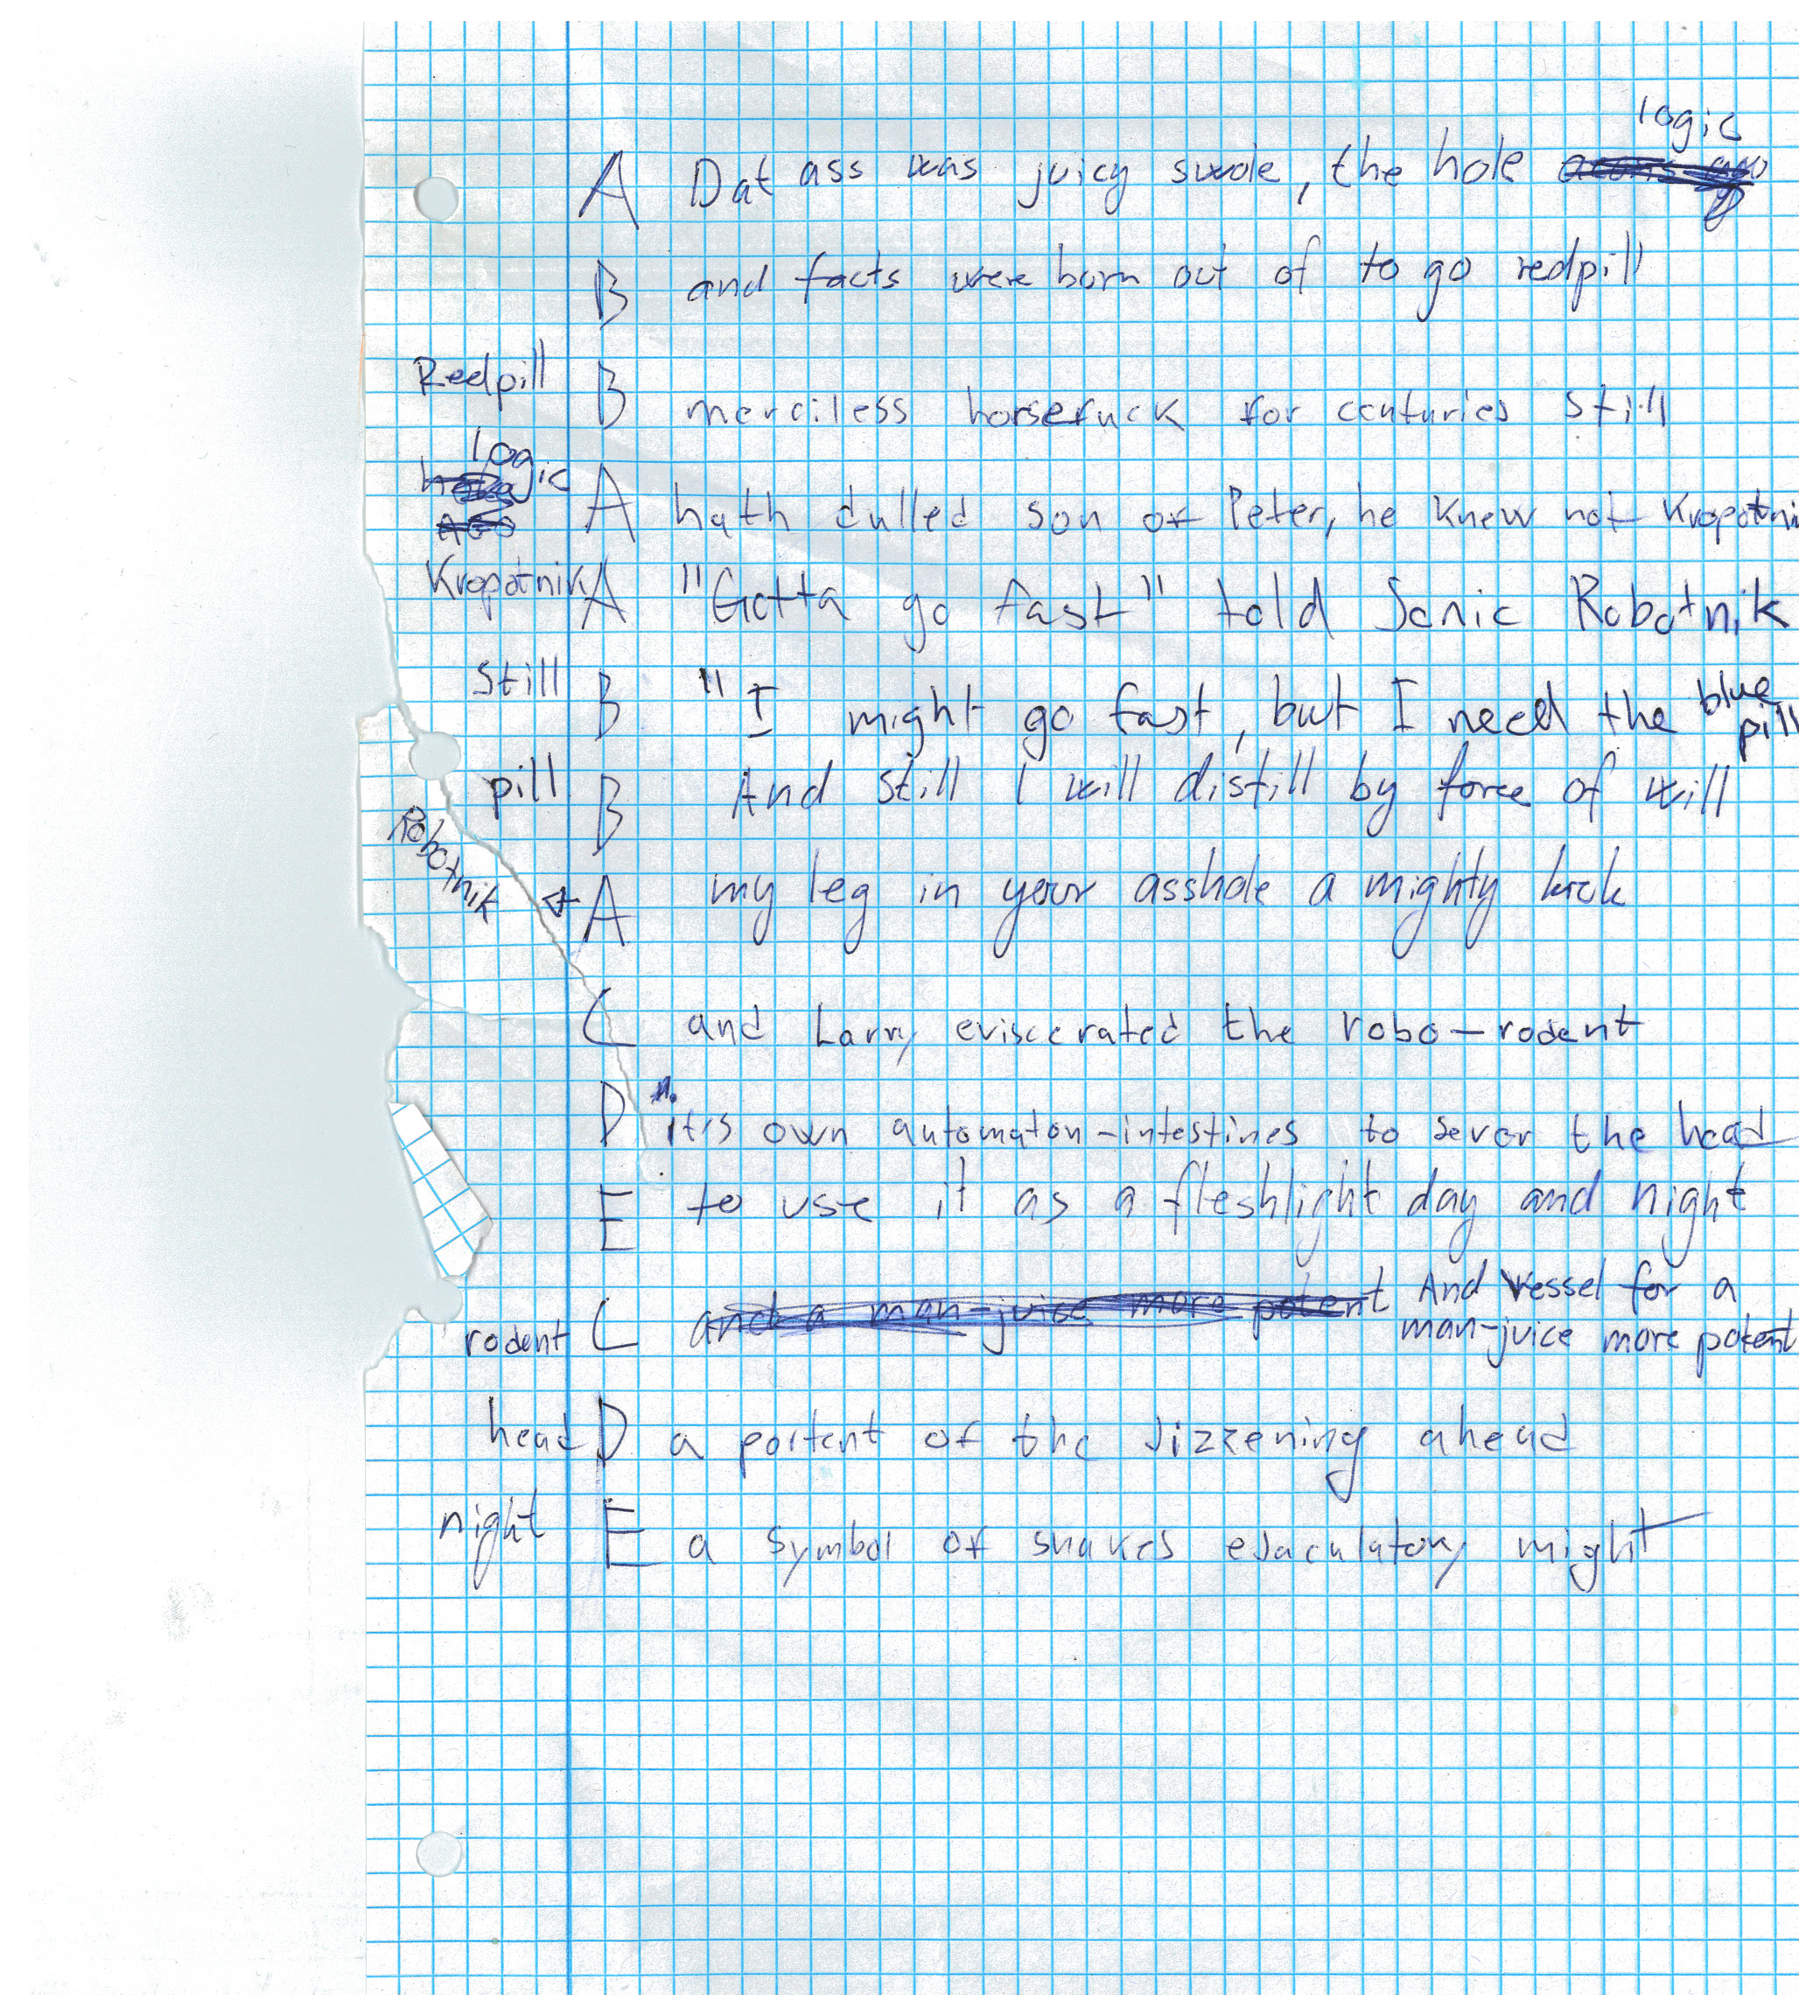 logic
A Dat ass was juicy swole, the hole
B and facts were born out of to go redpill
Redpill B merciless horsefuck for centuries still
logic A hath dulled son of Peter, he knew not Kropotni
Kropotnik A "Gotta go fast" told Sonic Robotnik
Still B "I might go fast, but I need the blue pill
pill B And still I will distill by force of will
Robotnik A my leg in your asshole a mighty kick
C and Larry eviscerated the robo-rodent
D it's own automaton-intestines to sever the head
E to use it as a fleshlight day and night
rodent C and a man-juice more potent And vessel for a
man-juice more potent
head D a portent of the Jizzening ahead
night E a symbol of snakes ejaculatory might